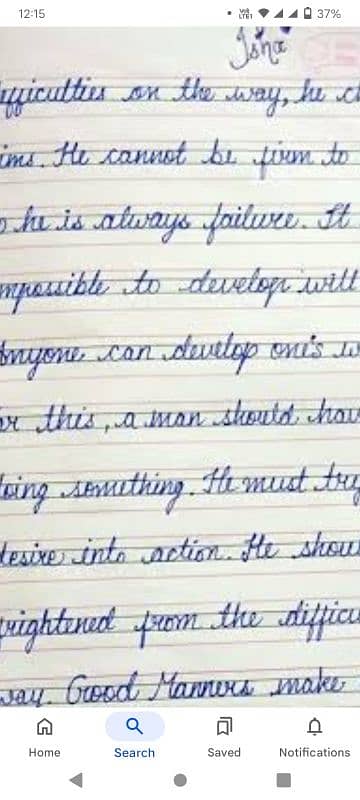 12:15
37%
Isha
difficulties on the way, he ch
ims. He cannot be firm to
o he is always failure. It
mpossible to develop will
Anyone can develop one's w
or this, a man should hav
doing something. He must try
desire into action. He shou
frightened from the difficu
way. Good Manners make
Home Search Saved Notifications